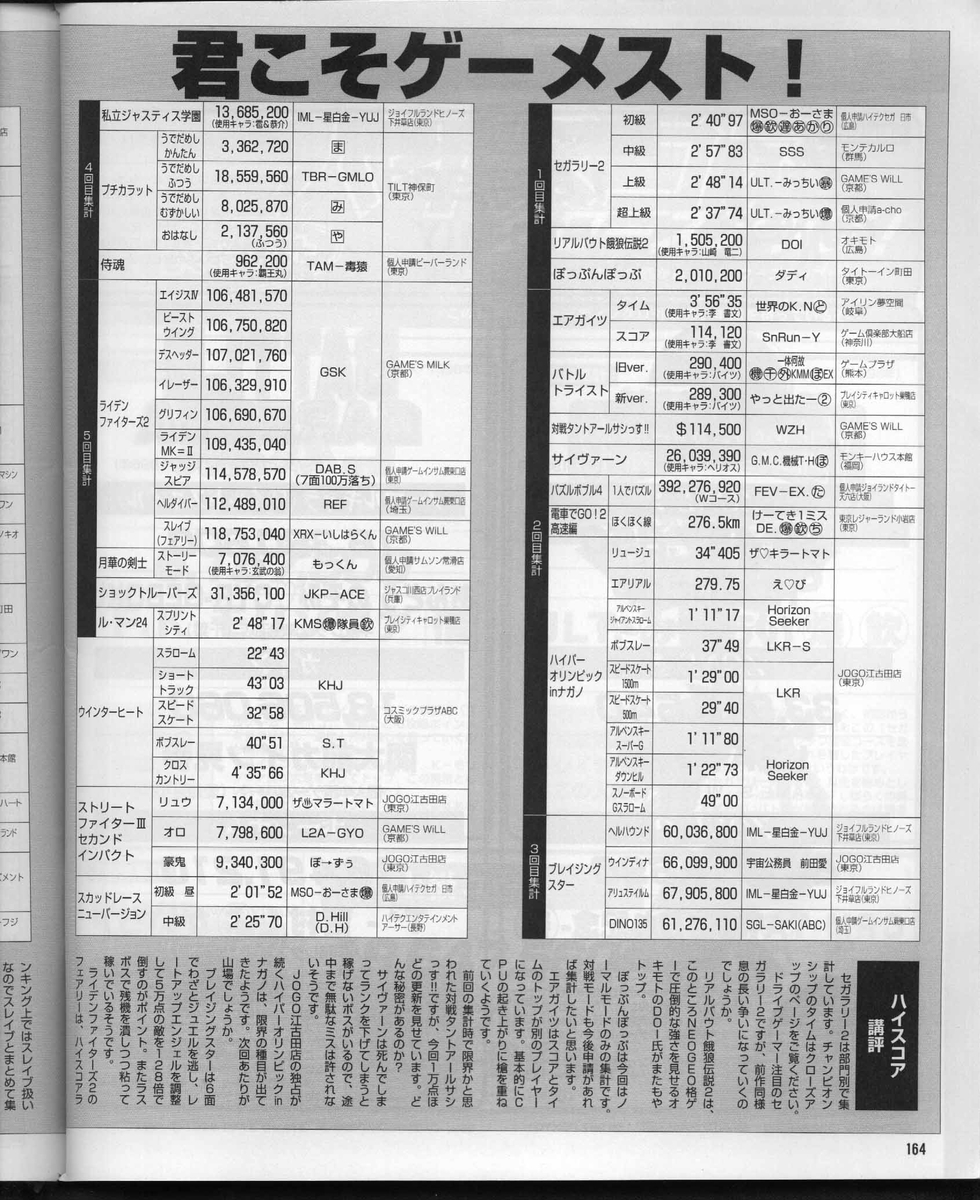 君こそゲーメスト!
1回目集計
セガラリー2 初級 2'40"97 MSO-おーさま 爆欽遅あかり 個人申請ハイテクセガ 日市(広島)
中級 2'57"83 SSS モンテカルロ(群馬)
上級 2'48"14 ULT.-みっちい GAME'S WiLL(京都)
超上級 2'37"74 ULT.-みっちい爆 個人申請a-cho(京都)
リアルバウト餓狼伝説2 1,505,200 (使用キャラ:山崎 竜二) DOI オキモト(広島)
ぽっぷんぽっぷ 2,010,200 ダディ タイトーイン町田(東京)
2回目集計
エアガイツ タイム 3'56"35 (使用キャラ:李 書文) 世界のK.Nと アイリン夢空間(岐阜)
スコア 114,120 (使用キャラ:李 書文) SnRun-Y ゲーム倶楽部大船店(神奈川)
バトルトライスト 旧ver. 290,400 (使用キャラ:バイツ) 一体何故 機千外KMMぽEX ゲームプラザ(熊本)
新ver. 289,300 (使用キャラ:バイツ) やっと出たー② プレイシティキャロット巣鴨店(東京)
対戦タントアールサシっす!! $114,500 WZH GAME'S WiLL(京都)
サイヴァーン 26,039,390 (使用キャラ:ヘリオス) G.M.C.機械T・Hぽ モンキーハウス本館(福岡)
パズルボブル4 1人でパズル 392,276,920 (Wコース) FEV-EX.た 個人申請ジョイランドタイトー天六店(大阪)
電車でGO!2高速編 ほくほく線 276.5km けーてき1ミスDE.爆欽ち 東京レジャーランド小岩店(東京)
ハイパーオリンピックinナガノ リュージュ 34"405 ザ♡キラートマト JOJO江古田店(東京)
エアリアル 279.75 え♡び
アルペンスキージャイアントスラローム 1'11"17 Horizon Seeker
ボブスレー 37"49 LKR-S
スピードスケート1500m 1'29"00 LKR
スピードスケート500m 29"40
アルペンスキースーパーG 1'11"80 Horizon Seeker
アルペンスキーダウンヒル 1'22"73
スノーボードGスラローム 49"00
3回目集計
ブレイジングスター ヘルハウンド 60,036,800 IML-星白金-YUJ ジョイフルランドヒノーズ下井草店(東京)
ウインディナ 66,099,900 宇宙公務員 前田愛 JOGO江古田店(東京)
アリュステイルム 67,905,800 IML-星白金-YUJ ジョイフルランドヒノーズ下井草店(東京)
DINO135 61,276,110 SGL-SAKI(ABC) 個人申請ゲームインサム蕨東口店(埼玉)
4回目集計
私立ジャスティス学園 13,685,200 (使用キャラ:雹&恭介) IML-星白金-YUJ ジョイフルランドヒノーズ下井草店(東京)
プチカラット うでだめしかんたん 3,362,720 ま TILT神保町(東京)
うでだめしふつう 18,559,560 TBR-GMLO
うでだめしむずかしい 8,025,870 み
おはなし 2,137,560 (ふつう) や
侍魂 962,200 (使用キャラ:覇王丸) TAM-毒猿 個人申請ビーバーランド(東京)
5回目集計
ライデンファイターズ2 エイジスⅣ 106,481,570 GSK GAME'S MILK(京都)
ビーストウイング 106,750,820
デスペッダー 107,021,760
イレーザー 106,329,910
グリフィン 106,690,670
ライデンMK=Ⅱ 109,435,040
ジャッジスピア 114,578,570 DAB.S (7面100万落ち) 個人申請ゲームインサム蕨東口店(東京)
ヘルダイバー 112,489,010 REF 個人申請ゲームインサム蕨東口店(埼玉)
スレイブ(フェアリー) 118,753,040 XRX-いしはらくん GAME'S WiLL(京都)
月華の剣士 ストーリーモード 7,076,400 (使用キャラ:玄武の翁) もっくん 個人申請サムソン常滑店(愛知)
ショックトルーパーズ 31,356,100 JKP-ACE ジャスコ川西店プレイランド(兵庫)
ル・マン24 スプリントシティ 2'48"17 KMS爆隊員欽 プレイシティキャロット巣鴨店(東京)
ウインターヒート スラローム 22"43 KHJ コスミックプラザABC(大阪)
ショートトラック 43"03
スピードスケート 32"58
ボブスレー 40"51 S.T
クロスカントリー 4'35"66 KHJ
ストリートファイターⅢセカンドインパクト リュウ 7,134,000 ザ♨マラートマト JOGO江古田店(東京)
オロ 7,798,600 L2A-GYO GAME'S WiLL(京都)
豪鬼 9,340,300 ぼ→ずぅ JOGO江古田店(東京)
スカッドレースニューバージョン 初級 昼 2'01"52 MSO-おーさま爆 個人申請ハイテクセガ 日市(広島)
中級 2'25"70 D.Hill (D.H) ハイテクエンタテインメントアーサー(長野)
ハイスコア講評
セガラリー2は部門別で集
計しています。チャンピオン
シップのタイムはクローズア
ップのページをご覧ください。
ドライブゲーマー注目のセ
ガラリー2ですが、前作同様
息の長い争いになっていくの
でしょうか。
リアルバウト餓狼伝説2は、
このところNEOGEO格ゲ
ーで圧倒的な強さを見せるオ
キモトのDOI氏がまたもや
トップ。
ぽっぷんぽっぷは今回はノ
ーマルモードのみの集計です。
対戦モードも今後申請があれ
ば集計したいと思います。
エアガイツはスコアとタイ
ムのトップが別のプレイヤー
になっています。基本的にC
PUの起き上がりに槍を重ね
ていくようです。
前回の集計時で限界かと思
われた対戦タントアールサシ
っす!!ですが、今回1万点ほ
どの更新を見せています。ど
んな秘密があるのか?
サイヴァーンは死んでしま
ってランクを下げてしまうと
稼げないボスがいるので、途
中まで無駄なミスは許されな
いそうです。
JOGO江古田店の独占が
続くハイパーオリンピックin
ナガノは、限界の種目が出て
きたようです。次回あたりが
山場でしょうか。
ブレイジングスターは6面
でわざとジュエルを逃し、レ
ートアップエンジェルを調整
して5万点の敵を128倍で
倒すのがポイント。またラス
ボスで残機を潰しつつ粘って
稼いでいるそうです。
ライデンファイターズ2の
フェアリーは、ハイスコアラ
ンキング上ではスレイブ扱い
なのでスレイブとまとめて集
164